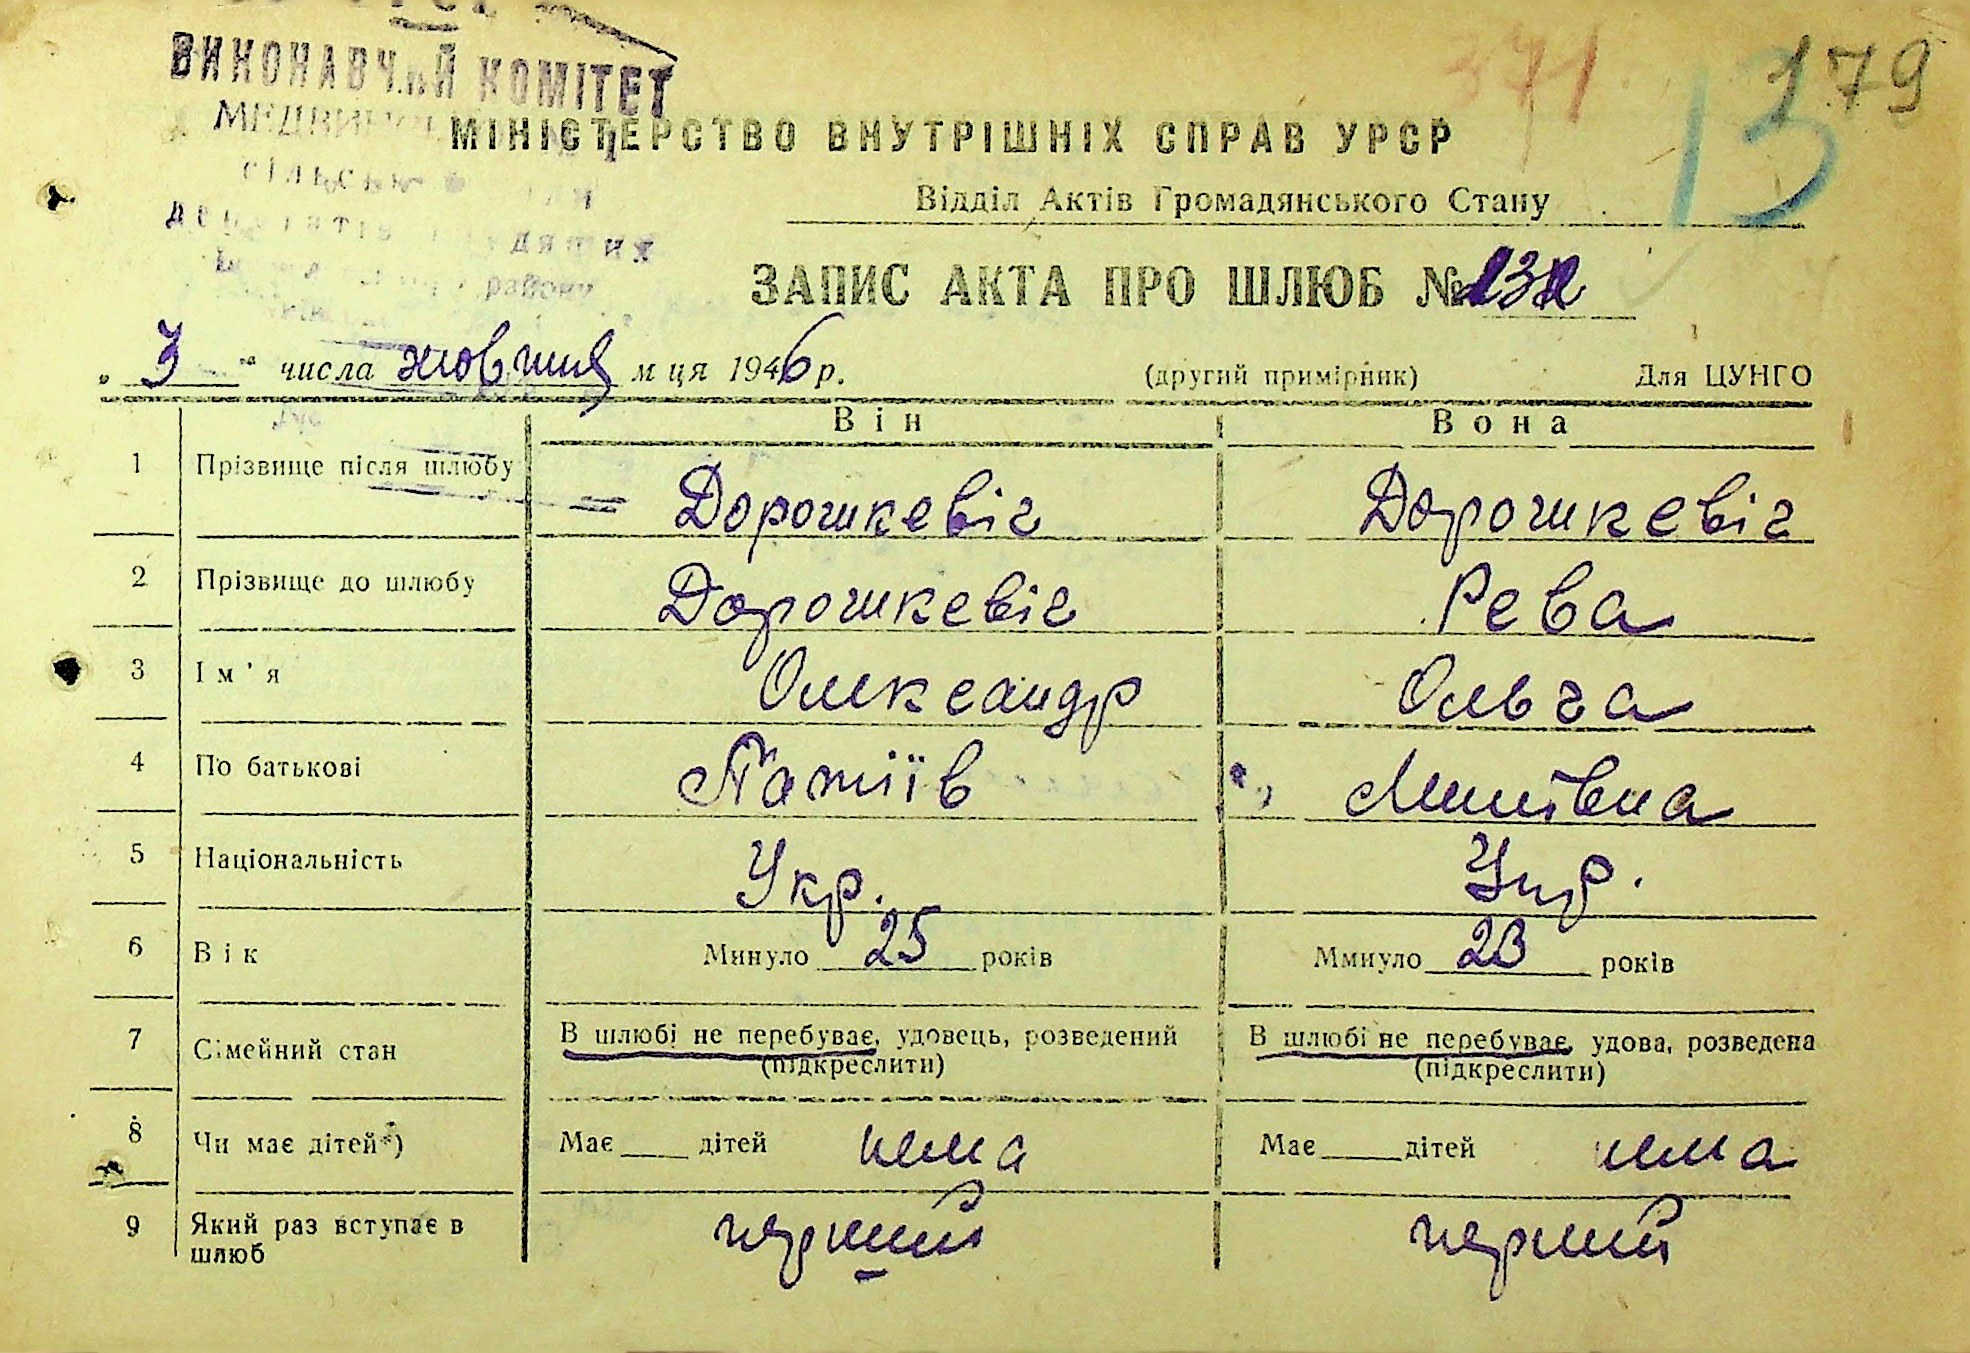 ВИКОНАВЧИЙ КОМІТЕТ
371 13 179
МІНІСТЕРСТВО ВНУТРІШНІХ СПРАВ УРСР
Відділ Актів Громадянського Стану
району
ЗАПИС АКТА ПРО ШЛЮБ №
„ 3 " числа жовтня м ця 1946 р. (другий примірник) Для ЦУНГО
Він Вона
1 Прізвище після шлюбу Дорошкевіч Дорошкевіч
2 Прізвище до шлюбу Дорошкевіч Рева
3 Ім'я Олександр Ольга
4 По батькові
5 Національність Укр. Укр.
6 Вік Минуло 25 років Ммнуло 23 років
7 Сімейний стан В шлюбі не перебуває, удовець, розведений В шлюбі не перебуває, удова, розведена
(підкреслити) (підкреслити)
8 Чи має дітей*) Має ___ дітей нема Має ___ дітей нема
9 Який раз вступає в шлюб перший перший